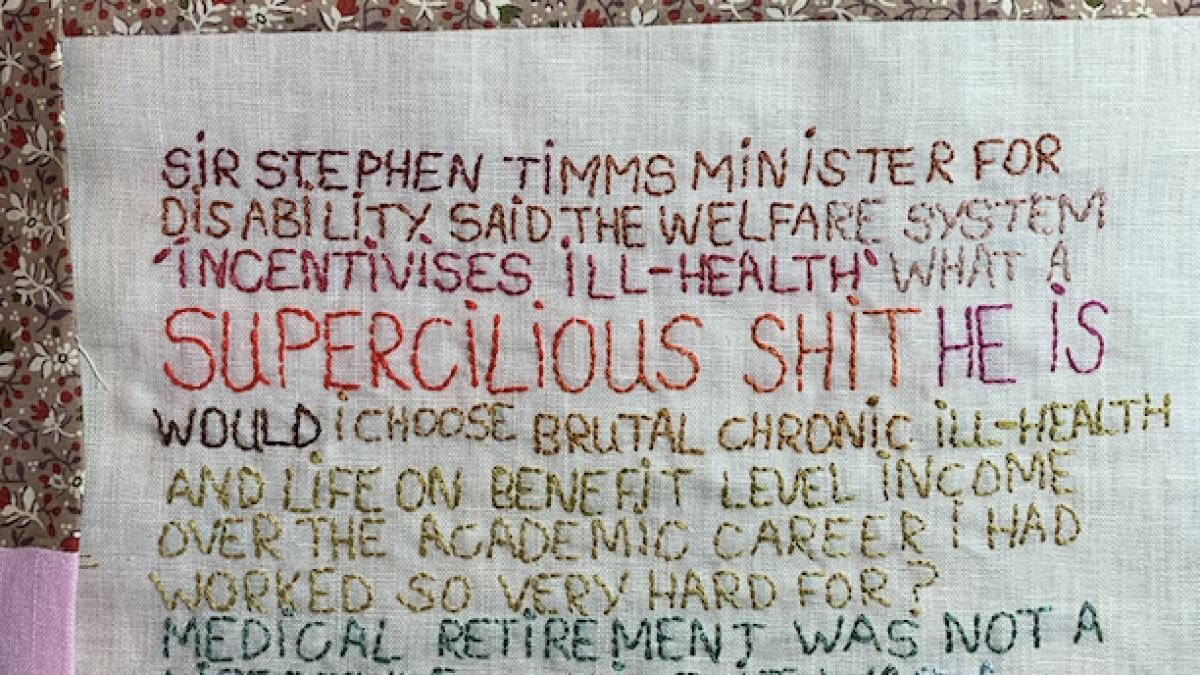 SiR STEPHEN TiMMS MiNiSTER FOR
DiSABiLiTY SAiD THE WELFARE SYSTEM
'iNCENTiViSES iLL-HEALTH' WHAT A
SUPERCiLiOUS SHiT HE iS
WOULD i CHOOSE BRUTAL CHRONiC iLL-HEALTH
AND LiFE ON BENEFiT LEVEL iNCOME
OVER THE ACADEMiC CAREER i HAD
WORKED SO VERY HARD FOR?
MEDiCAL RETiREMENT WAS NOT A